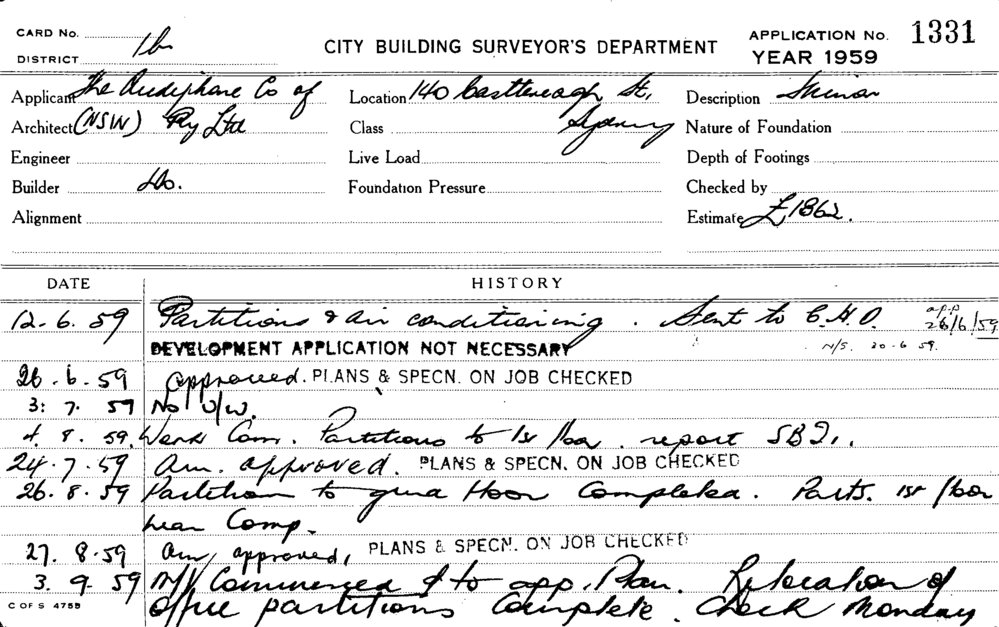 CARD No.
1b
DISTRICT
CITY BUILDING SURVEYOR'S DEPARTMENT
APPLICATION No. 1331
YEAR 1959
Applicant The Audiphone Co of
Architect (NSW) Pty Ltd
Engineer
Builder Do.
Alignment
Location 140 Castlereagh St,
Class Sydney
Live Load
Foundation Pressure
Description
Nature of Foundation
Depth of Footings
Checked by
Estimate £1862.
DATE HISTORY
12.6.59 Partitions & air conditioning. Sent to C.H.O. app 26/6/59
DEVELOPMENT APPLICATION NOT NECESSARY N/S. 20.6.59.
26.6.59 approved. PLANS & SPECN. ON JOB CHECKED
3:7.59 No W.
4.8.59. Work Com. Partitions to 1st floor. report
24.7.59 Am. approved. PLANS & SPECN. ON JOB CHECKED
26.8.59 Partition to grnd floor Completed. Parts. 1st floor
near Comp.
27.8.59 Am, approved, PLANS & SPECN. ON JOB CHECKED
3.9.59 Commenced & to app. Plan. Relocation of
C OF S 4755
office partitions Complete. Check Monday